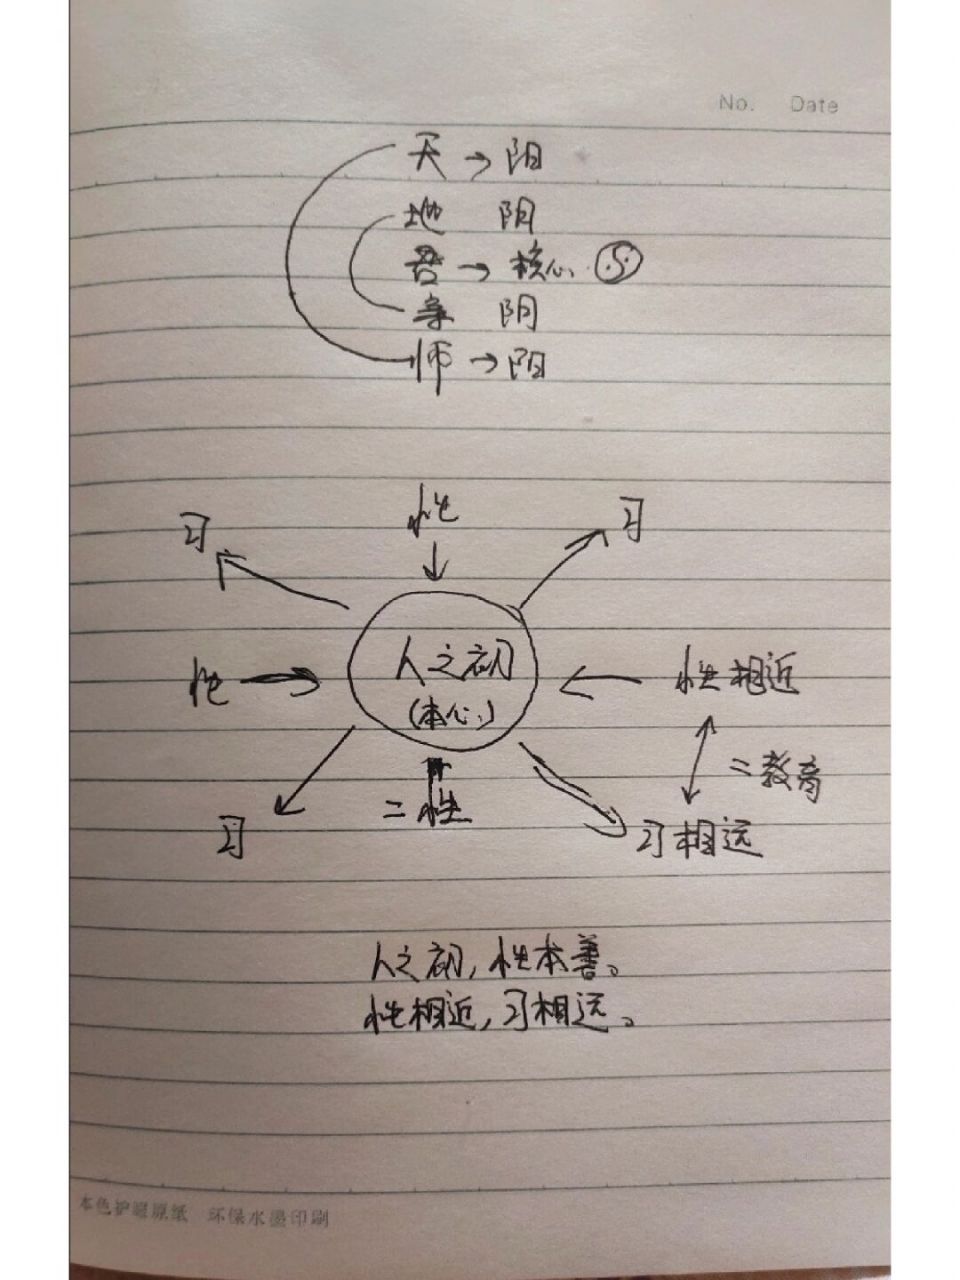 No. Date
天→阳
地 阴
吾→核心
亲 阴
师→阳
习 性 习
人之初
性 性相近
(本心)
二教育
习 二性 习相远
人之初,性本善。
性相近,习相远。
本色护眼原纸 环保水墨印刷